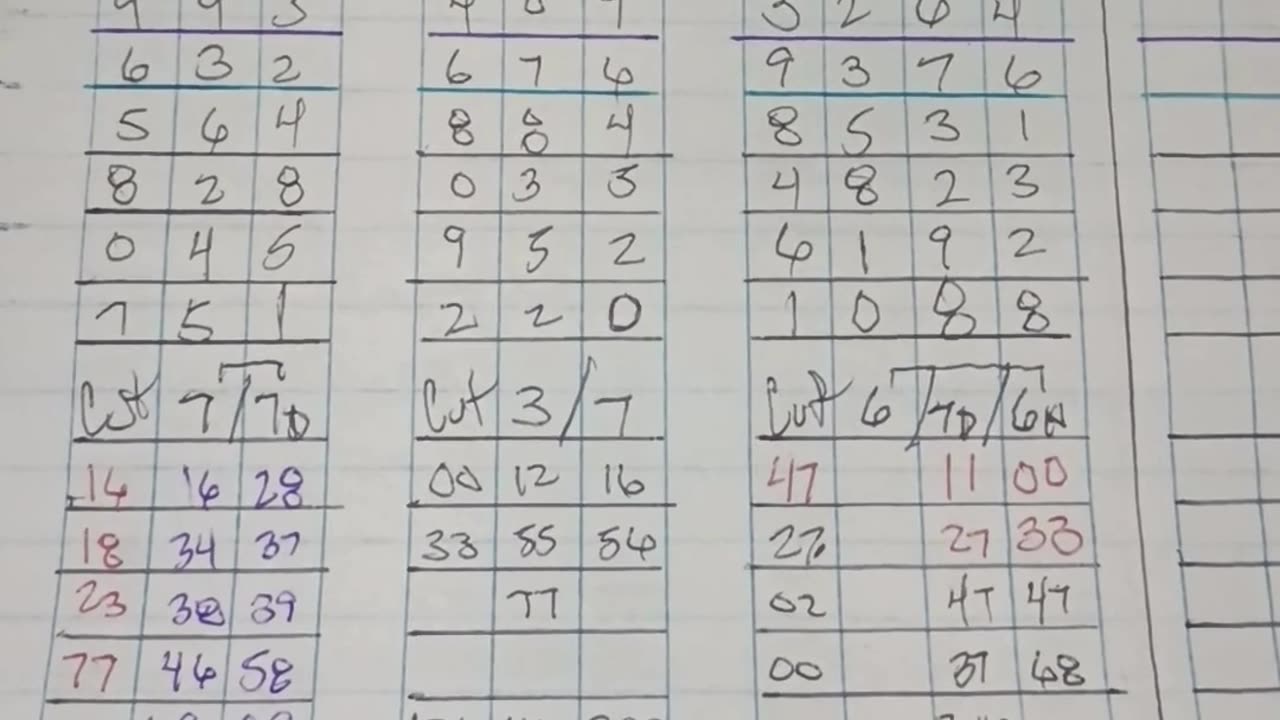 6 3 2 6 7 6 9 3 7 6
5 6 4 8 0 4 8 5 3 1
8 2 8 0 3 5 4 8 2 3
0 4 5 9 5 2 6 1 9 2
7 5 1 2 2 0 1 0 8 8
Cut 7/7D Cut 3/7 Cut 6/7D/6
14 16 28 00 12 16 47 11 00
18 34 37 33 55 56 27 27 33
23 39 77 02 47 47
77 46 58 00 37 68